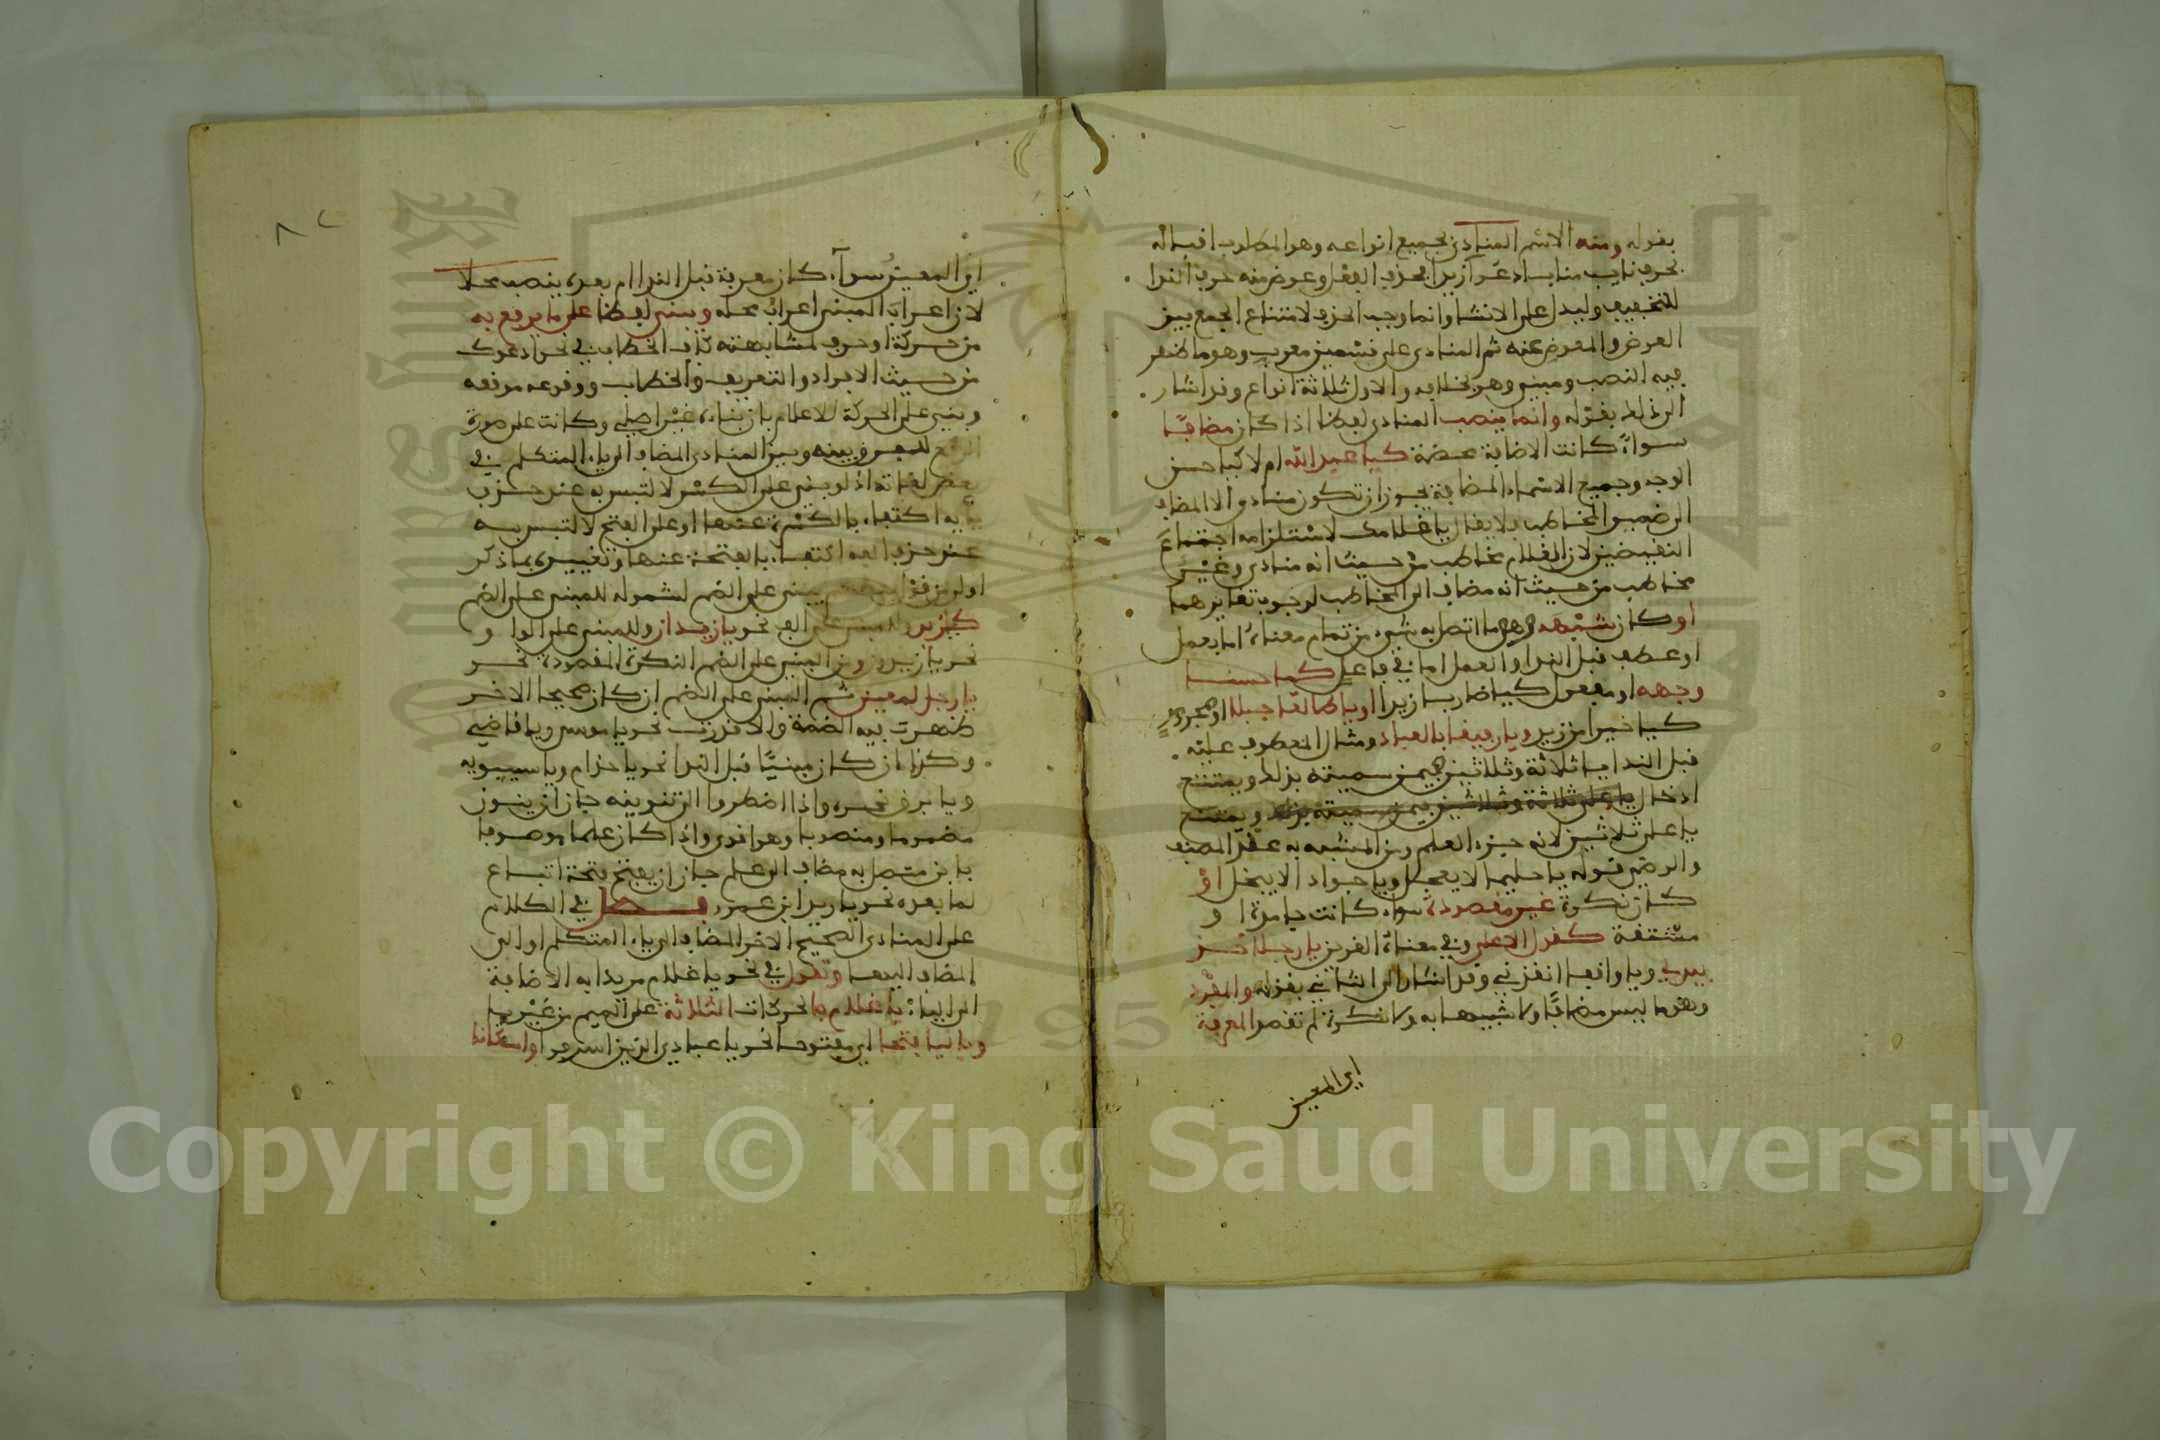 بقوله ومنه الاسم المنادى بجميع انواعه وهو المطلوب اقباله
بحرف نايب مناب ادعو آزيد فحذف الفعل وعوض منه حرف الندا
للتخفيف وليدل على الانشا وانما وجب الحذف لامتناع الجمع بين
العوض والمعوض عنه ثم المنادى على قسمين معرب وهو ما ظهر
فيه النصب ومبني وهو بخلافه والاول ثلاثة انواع وقد اشار
الى ذلك بقوله وانما ينصب المنادى لفظا اذا كان مضافًا
سواء كانت الاضافة محضة كيا عبد الله ام لا كيا حسن
الوجه وجميع الاسماء المضافة يجوز ان تكون منادى الا المضاف
الى ضمير المخاطب فلا يقال يا غلامك لاستلزامه اجتماع
النقيضين لان الغلام مخاطب من حيث انه منادى وغير
مخاطب من حيث انه مضاف الى المخاطب لوجوب تغايرهما
او كان شبهه وهو ما اتصل به شيء من تمام معناه اما بعمل
او عطف قبل الندا والعمل اما في فاعل كيا حسنا
وجهه او مفعول كيا ضاربا زيدا او يا طالعا جبلا او مجرور
كيا خيرا من زيد ويا رفيقا بالعباد ومثال المعطوف عليه
قبل الندا يا ثلاثة وثلاثين فيمن سميته بذلك ويمتنع
ادخال يا على ثلاثة وثلاثين فيمن سميته بذلك ويمتنع
يا على ثلاثين لانه جزء العلم ومن المشبه به عند المصنف
والرضي قوله يا حليما لا يعجل ويا جوادا لا يبخل او
كان نكرة غير مقصودة سواء كانت جامدة او
مشتقة كقول الاعمى وفي معناه الغريق يا رجلا خذ
بيدي ويا واقفا انقذني وقد اشار الى الثاني بقوله والمفرد
وهو ما ليس مضافًا ولا شبيها به ولا نكرة لم تقصد المعرفة
اي المعين
اي المعين سوآء كان معرفة قبل الندا ام بعده ينصب محلا
لان اعراب المبني اعراب محله ويبنى لفظا على ما يرفع به
من حركة او حرف لمشابهته كاف الخطاب في نحو ادعوك
من حيث الافراد والتعريف والخطاب ووقوعه موقعه
وبني على الحركة للاعلام بان بناءه غير اصلي وكانت على صورة
للفرق بينه وبين المنادى المضاف الى ياء المتكلم في
بعض لغاته اذ لو بني على الكسر لالتبس به عند حذف
يايه اكتفاء بالكسرة عنها او على الفتح لالتبس به
عند حذف الفه اكتفاء بالفتحة عنها وتعبيره بما ذكر
اولى من قول يبنى على الضم لشموله للمبني على الضم
كيا زيد وللمبني على الف نحو يا زيدان وللمبني على الواو
نحو يا زيدون ومن المبني على الضم النكرة المقصودة نحو
يا رجل لمعين ثم المبني على الضم ان كان صحيح الاخر
ظهرت فيه الضمة والا قدرت نحو يا موسى ويا قاضي
وكذا ان كان مبنيًا قبل الندا نحو يا حذام ويا سيبويه
ويا برق نحره واذا اضطر الى تنوينه جاز ان ينون
مضموما ومنصوبا وهو اقوى واذا كان علما موصوفا
بابن متصل به مضاف الى علم جاز ان يفتح فتحة اتباع
لما بعده نحو يا زيد ابن عمرو فصل في الكلام
على المنادى الصحيح الاخر المضاف الى ياء المتكلم او الى
المضاف اليها وتقول في نحو يا غلام مريدا به الاضافة
الى الياء يا غلام بالحركات الثلاثة على الميم من غير يا
وبالياء فتحا اي مفتوحا نحو يا عبادي الذين اسرفوا واسكانا